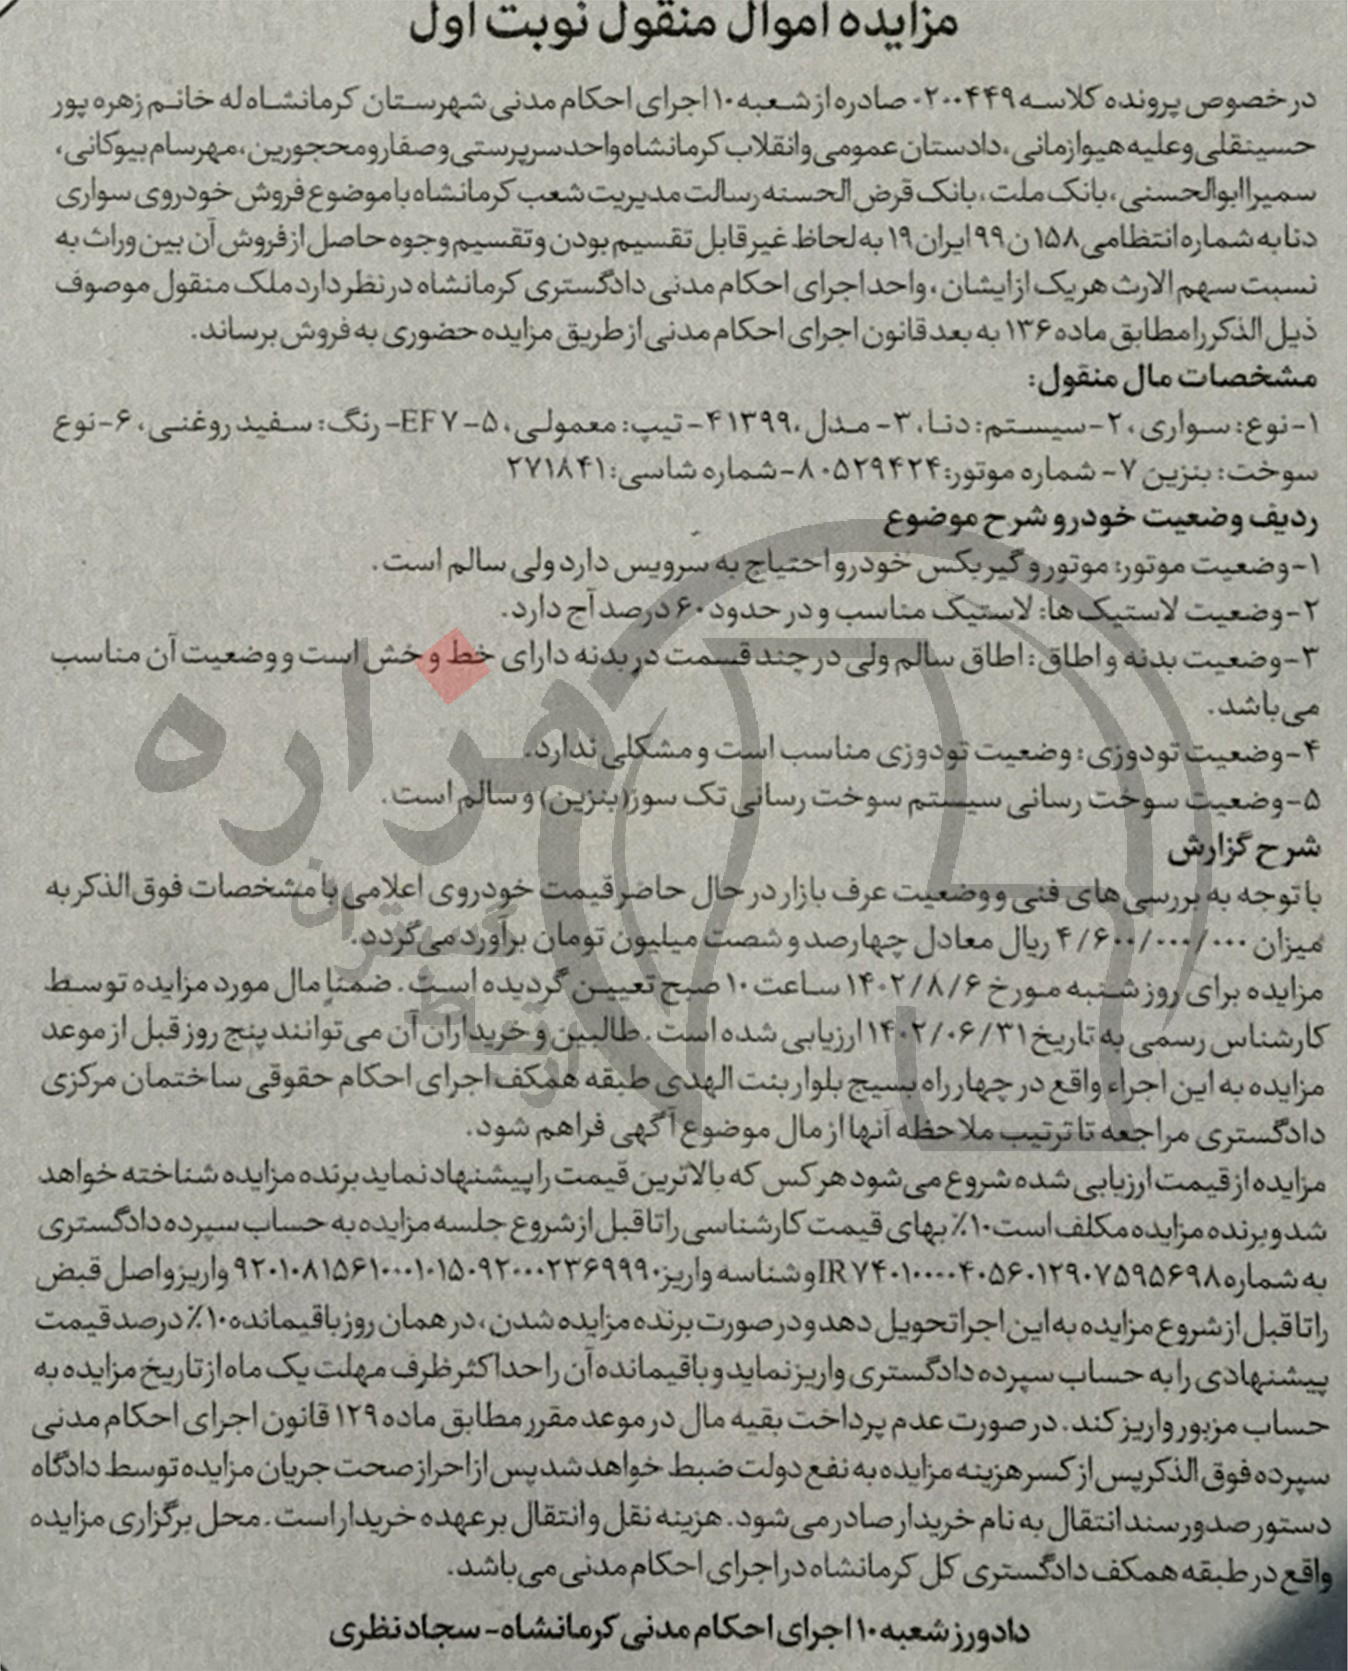 مزایده اموال منقول نوبت اول
در خصوص پرونده کلاسه ۰۲۰۰۴۴۹ صادره از شعبه ۱۰ اجرای احکام مدنی شهرستان کرمانشاه له خانم زهره پور
حسینقلی و علیه هیوا زمانی، دادستان عمومی و انقلاب کرمانشاه واحد سرپرستی و صغار و محجورین، مهرسام بیوکانی،
سمیرا ابوالحسنی، بانک ملت، بانک قرض الحسنه رسالت مدیریت شعب کرمانشاه با موضوع فروش خودروی سواری
دنا به شماره انتظامی ۱۵۸ ن ۹۹ ایران ۱۹ به لحاظ غیر قابل تقسیم بودن و تقسیم وجوه حاصل از فروش آن بین وراث به
نسبت سهم الارث هر یک از ایشان، واحد اجرای احکام مدنی دادگستری کرمانشاه در نظر دارد ملک منقول موصوف
ذیل الذکر را مطابق ماده ۱۳۶ به بعد قانون اجرای احکام مدنی از طریق مزایده حضوری به فروش برساند.
مشخصات مال منقول:
۱-نوع: سواری، ۲-سیستم: دنا، ۳- مدل، ۱۳۹۹ ۴- تیپ: معمولی، EF۷-۵- رنگ: سفید روغنی، ۶-نوع
سوخت: بنزین ۷- شماره موتور: ۰۵۲۹۴۲۴ ۸-شماره شاسی: ۲۷۱۸۴۱
ردیف وضعیت خودرو شرح موضوع
۱-وضعیت موتور: موتور و گیربکس خودرو احتیاج به سرویس دارد ولی سالم است.
۲-وضعیت لاستیک ها: لاستیک مناسب و در حدود ۶۰ درصد آج دارد.
۳-وضعیت بدنه و اطاق: اطاق سالم ولی در چند قسمت در بدنه دارای خط و خش است و وضعیت آن مناسب
می باشد.
۴-وضعیت تودوزی: وضعیت تودوزی مناسب است و مشکلی ندارد.
۵-وضعیت سوخت رسانی سیستم سوخت رسانی تک سوز (بنزین) و سالم است.
شرح گزارش
با توجه به بررسی های فنی و وضعیت عرف بازار در حال حاضر قیمت خودروی اعلامی با مشخصات فوق الذکر به
میزان ۴/۶۰۰/۰۰۰/۰۰۰ ریال معادل چهارصد و شصت میلیون تومان برآورد می گردد.
مزایده برای روز شنبه مورخ ۱۴۰۲/۸/۶ ساعت ۱۰ صبح تعیین گردیده است. ضمنا مال مورد مزایده توسط
کارشناس رسمی به تاریخ ۱۴۰۲/۰۶/۳۱ ارزیابی شده است. طالبین و خریداران آن می توانند پنج روز قبل از موعد
مزایده به این اجراء واقع در چهارراه بسیج بلوار بنت الهدی طبقه همکف اجرای احکام حقوقی ساختمان مرکزی
دادگستری مراجعه تا ترتیب ملاحظه آنها از مال موضوع آگهی فراهم شود.
مزایده از قیمت ارزیابی شده شروع می شود هر کس که بالاترین قیمت را پیشنهاد نماید برنده مزایده شناخته خواهد
شد و برنده مزایده مکلف است ۱۰٪ بهای قیمت کارشناسی را تا قبل از شروع جلسه مزایده به حساب سپرده دادگستری
به شماره IR و شناسه واریز واریز و اصل قبض
را تا قبل از شروع مزایده به این اجرا تحویل دهد و در صورت برنده مزایده شدن، در همان روز باقیمانده ۱۰٪ درصد قیمت
پیشنهادی را به حساب سپرده دادگستری واریز نماید و باقیمانده آن را حداکثر ظرف مهلت یک ماه از تاریخ مزایده به
حساب مزبور واریز کند. در صورت عدم پرداخت بقیه مال در موعد مقرر مطابق ماده ۱۲۹ قانون اجرای احکام مدنی
سپرده فوق الذکر پس از کسر هزینه مزایده به نفع دولت ضبط خواهد شد پس از احراز صحت جریان مزایده توسط دادگاه
دستور صدور سند انتقال به نام خریدار صادر می شود. هزینه نقل و انتقال بر عهده خریدار است. محل برگزاری مزایده
واقع در طبقه همکف دادگستری کل کرمانشاه در اجرای احکام مدنی می باشد.
دادورز شعبه ۱۰ اجرای احکام مدنی کرمانشاه- سجاد نظری
هزاره